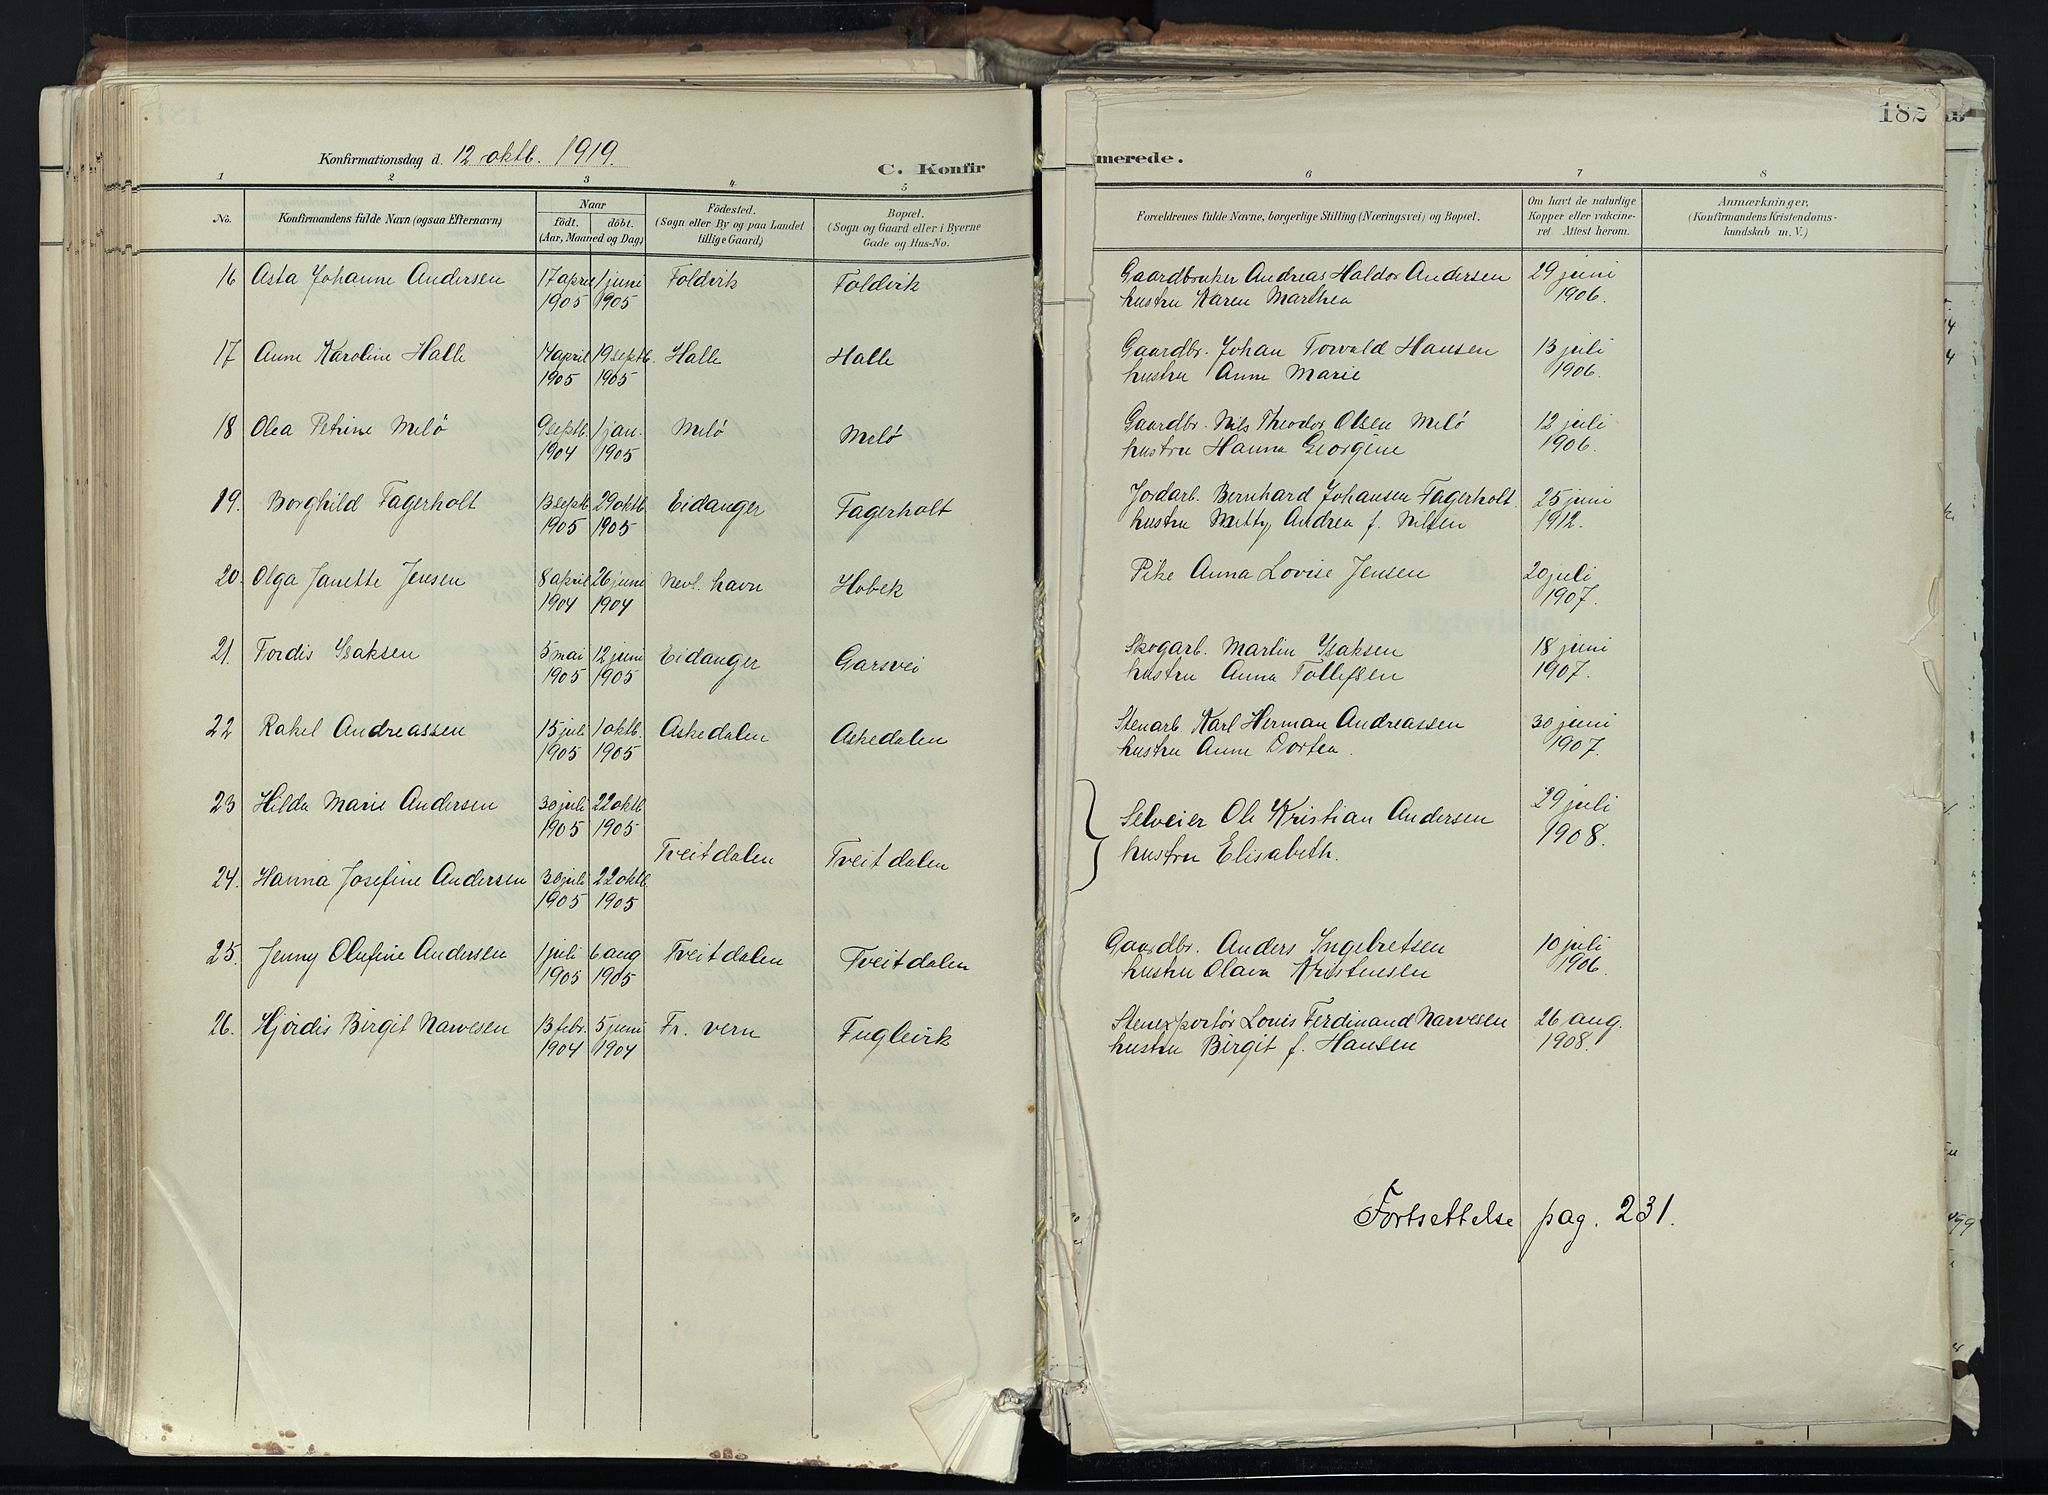 182
Konfirmationsdag d. 12 oktb. 1919.
C. Konfirmerede.
1 2 3 4 5 6 7 8
No.
Konfirmandens fulde Navn (ogsaa Efternavn)
Naar
födt. döbt.
(Aar, Maaned og Dag)
Födested.
(Sogn eller By og paa Landet
tillige Gaard)
Bopæl.
(Sogn og Gaard eller i Byerne
Gade og Hus-No.
Forældrenes fulde Navne, borgerlige Stilling (Næringsvei) og Bopæl.
Om havt de naturlige
Kopper eller vakcine-
ret Attest herom.
Anmærkninger,
(Konfirmandens Kristendoms-
kundskab m. V.)
16 Asta Johanne Andersen 17 april 1 juni Foldvik Foldvik Gaardbruker Andreas Haldor Andersen 29 juni
1905 1905 hustru Karen Marthea 1906.
17 Anne Karoline Halle 14 april 19 septb. Halle Halle Gaardbr. Johan Torvald Hansen 13 juli
1905 1905 hustru Anne Marie 1906.
18 Olea Petrine Melö 9 septb. 1 jan. Melö Melö Gaardbr. Nils Theodor Olsen Melö 12 juli
1904 1905 hustru Hanna Georgine 1906.
19. Borghild Fagerholt 13 septb. 29 oktb. Eidanger Fagerholt Jordarb. Bernhard Johansen Fagerholt. 25 juni
1905 1905 hustru Andrea f. Nilsen 1912.
20. Olga Janette Jensen 8 april 26 juni Nevl. havn Hobek Pike Anna Lovise Jensen 20 juli
1904 1904 1907.
21. Tordis Isaksen 5 mai 12 juni Eidanger Garsvei Skogarb. Martin Isaksen 18 juni
1905 1905 hustru Anna Tollefsen 1907.
22 Rakel Andreassen 15 juli 1 oktb. Askedalen Askedalen Stenarb. Karl Herman Andreassen 30 juni
1905 1905 hustru Anne Dortea. 1907.
23 Hilda Marie Andersen 30 juli 22 oktb. 29 juli
1905 1905 Selveier Ole Kristian Andersen 1908.
Tveitdalen Tveitdalen hustru Elisabeth.
24. Hanna Josefine Andersen 30 juli 22 oktb.
1905 1905
25. Jenny Olufine Andersen 1 juli 6 aug Tveitdalen Tveitdalen Gaardbr. Anders Ingebretsen 10 juli
1905 1905 hustru Olava Kristensen 1906.
26. Hjördis Birgit Narvesen 13 febr. 5 juni Fr. vern Fuglevik Stenexportör Louis Ferdinand Narvesen 26 aug.
1904 1904 hustru Birgit f. Hansen 1908.
Fortsettelse pag. 231.